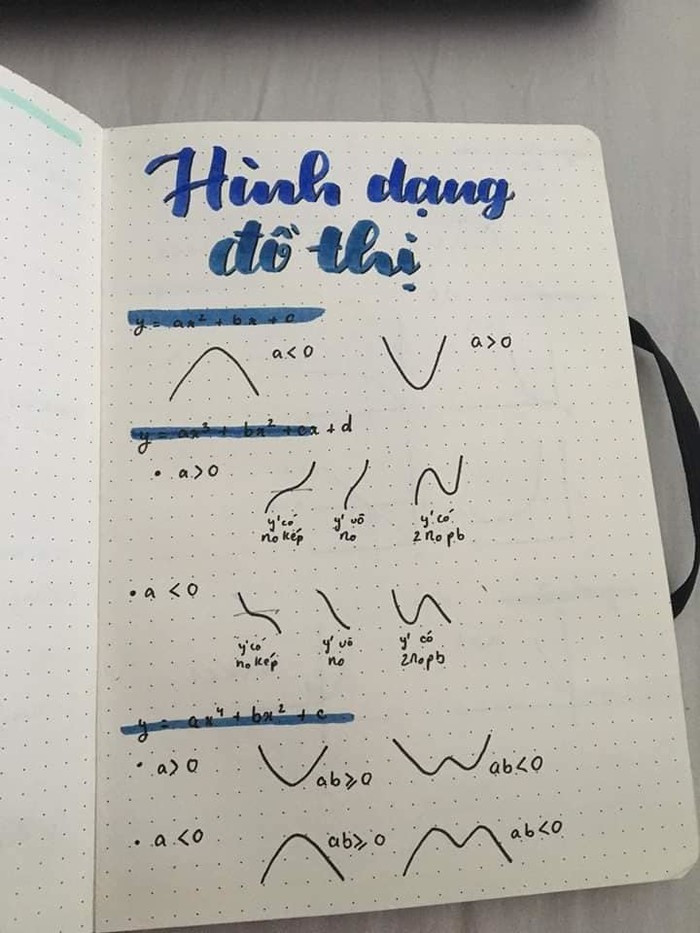 Hình dạng
đồ thị
y = ax² + bx + c
a < 0
a > 0
y = ax³ + bx² + cx + d
• a > 0
y' có
no kép
y' vô
no
y' có
2 no pb
• a < 0
y' có
no kép
y' vô
no
y' có
2 no pb
y = ax⁴ + bx² + c
• a > 0
ab ⩾ 0
ab < 0
• a < 0
ab ⩾ 0
ab < 0